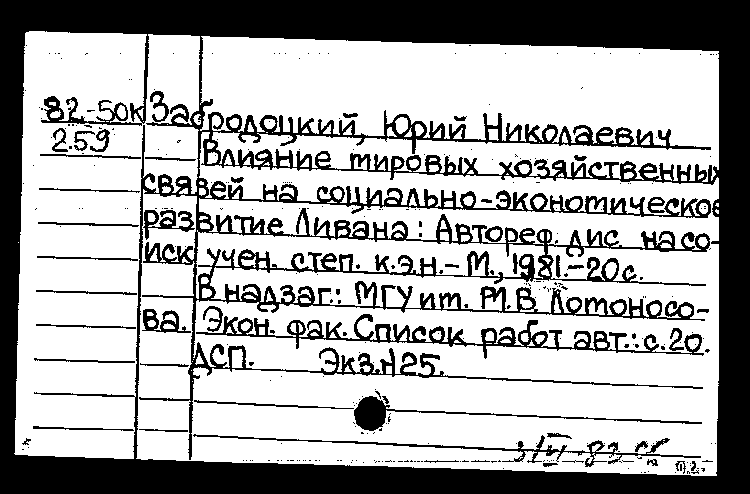 82-50к Забродоцкий, Юрий Николаевич
259
Влияние мировых хозяйственных
связей на социально-экономическое
развитие Ливана: Автореф. дис. на со-
иск. учен. степ. к.э.н.-М., 1981.-20с.
В надзаг.: МГУ им. М.В. Ломоносо-
ва. Экон. фак. Список работ авт.: с.20.
ДСП. Экз.N25.